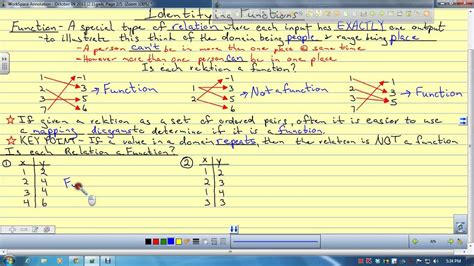 Identifying Functions
Function - A special type of relation where each input has EXACTLY one output
- to illustrate this think of the domain being people + range being place
- A person can't be in more than one place @ same time
- However more than one person can be in one place
Is each relation a function?
1 2 3 5 → Function
1 2 3 → Not a function
1 2 3 → Function
☆ If given a reltion as a set of ordered pairs, often it is easier to
use a mapping diagram to determine if it is a function.
☆ KEY POINT - If a value in a domain repeats, then the reltion is NOT a function
Is each Relation a Function?
① x y
1 2
2 4
3 4
4 6
② x y
1 2
2 3
1 4
3 3
5:34 PM